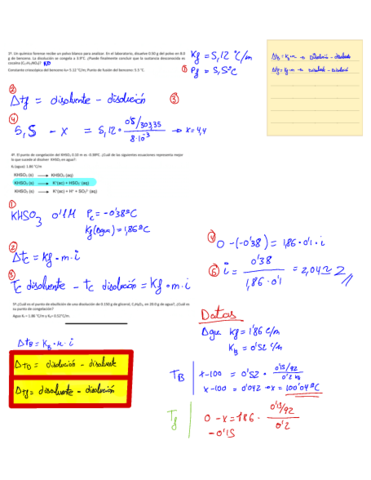 3º. Un químico forense recibe un polvo blanco para analizar. En el laboratorio, disuelve 0.50 g del polvo en 8.0
g de benceno. La disolución se congela a 3.9°C. ¿Puede finalmente concluir que la sustancia desconocida es
cocaína (C17H21NO4)? NO
Constante crioscópica del benceno k= 5.12 °C/m; Punto de fusión del benceno: 5.5 °C.
① Kf = 5,12 °C/m
Pf = 5,5°C
Δtb = Kb·m → disolución - disolvente
Δtf = Kf·m → disolvente - disolución
②
Δtf = disolvente - disolución ③
④
5,5 - x = 5,12 · 0'5/303'35 / 8·10⁻³ → x = 4,4
4º. El punto de congelación del KHSO3 0.10 m es -0.38ºC. ¿Cuál de las siguientes ecuaciones representa mejor
lo que sucede al disolver KHSO3 en agua?:
Kf (agua)= 1.86 °C/m
KHSO3 (s) → KHSO3 (aq)
KHSO3 (s) → K+(aq) + HSO3- (aq)
KHSO3 (s) → K+(aq) + H+ + SO3 2- (aq)
①
KHSO3 0'1M Pc = -0'38°C
Kf(agua) = 1,86°C
②
Δtc = Kf·m·i
③
Tc disolvente - tc disolución = Kf·m·i
④
0-(-0'38) = 1,86·0'1·i
⑤ i = 0'38 / 1,86·0'1 = 2,04 ≈ 2
5º ¿Cuál es el punto de ebullición de una disolución de 0.150 g de glicerol, C3H8O3, en 20.0 g de agua?, ¿Cuál es
su punto de congelación?
Agua Kf = 1.86 °C/m y Kb= 0.52°C/m.
Δtb = Kb·m·i
Δtb = disolución - disolvente
Δtf = disolvente - disolución
Datos
Agua Kf = 1'86 C/m
Kb = 0'52 C/m
TB
x-100 = 0'52 · 0'15/92 / 0'2 kg
x-100 = 0'042 → x = 100'04°C
Tf
0 - x = 1'86 · 0'15/92 / 0'2
-0'15